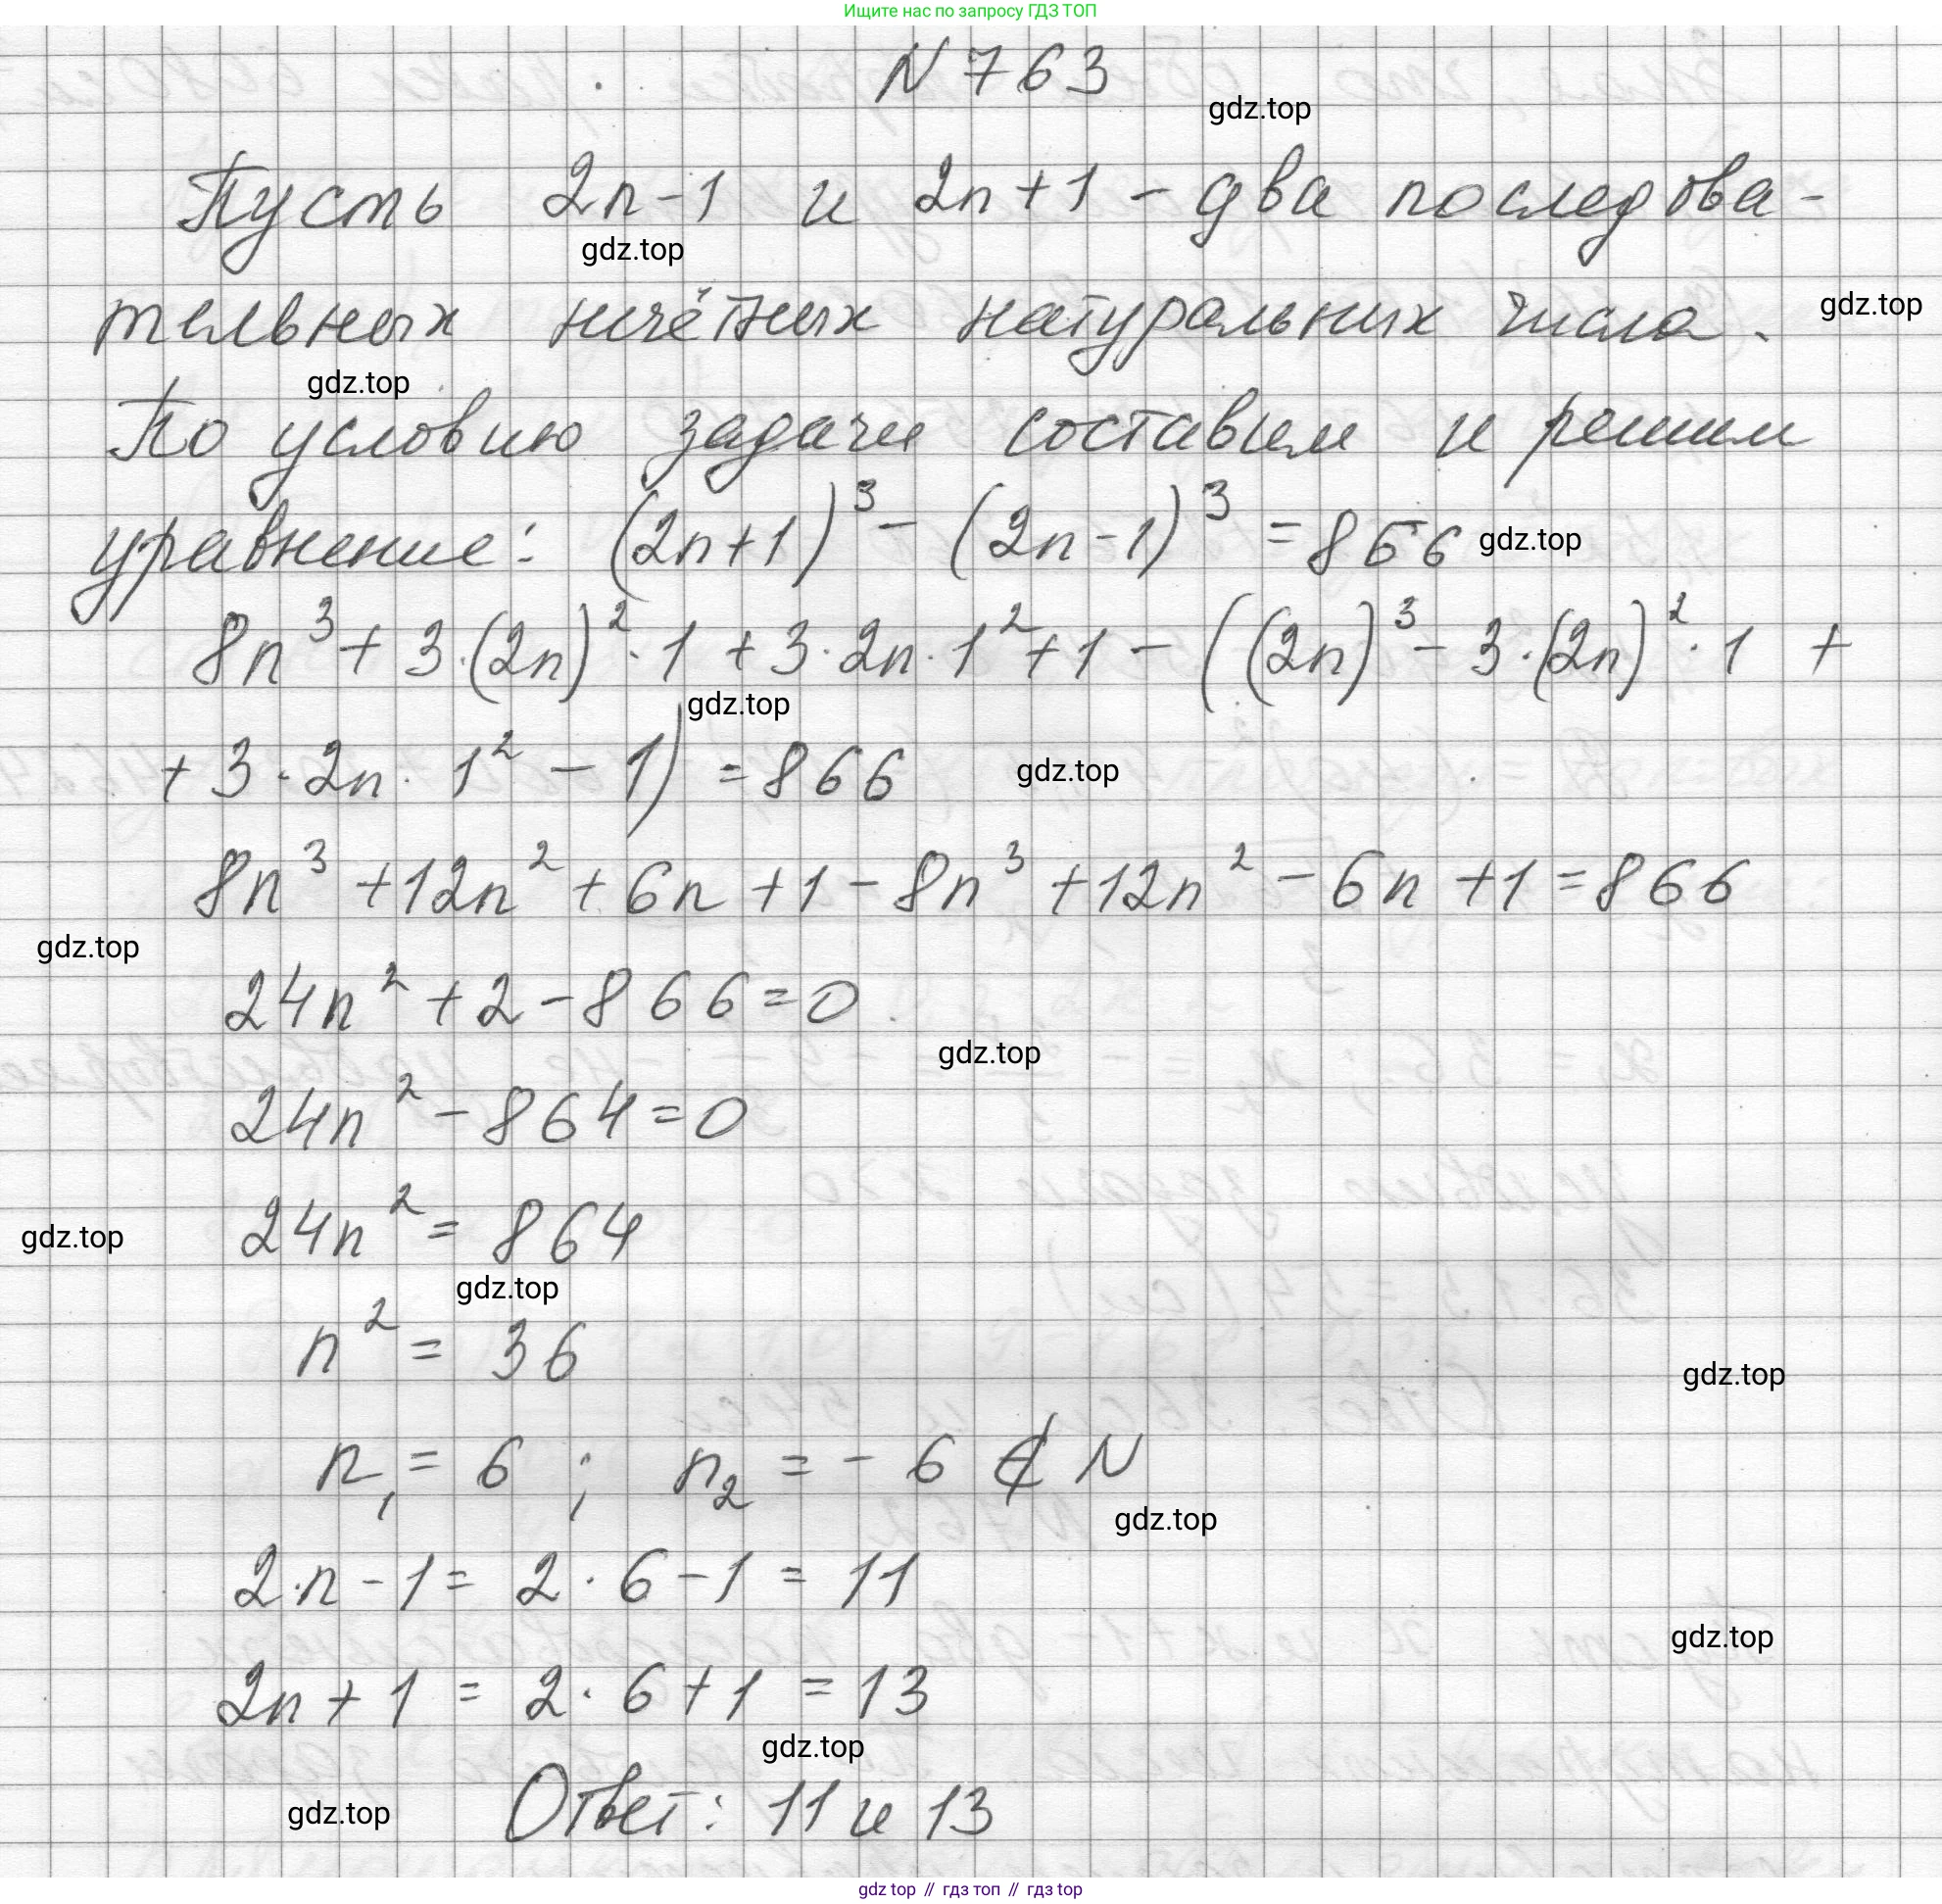 Ищите нас по запросу ГДЗ ТОП
N 763
gdz.top
Пусть 2n-1 и 2n+1 - два последова-
gdz.top
тельных нечётных натуральных числа.
gdz.top
gdz.top
По условию задачи составим и решим
уравнение: (2n+1)³ - (2n-1)³ = 866
gdz.top
8n³ + 3·(2n)²·1 + 3·2n·1² + 1 - ((2n)³ - 3·(2n)²·1 +
gdz.top
+ 3·2n·1² - 1) = 866
gdz.top
8n³ + 12n² + 6n + 1 - 8n³ + 12n² - 6n + 1 = 866
gdz.top
24n² + 2 - 866 = 0
gdz.top
24n² - 864 = 0
24n² = 864
gdz.top
gdz.top
n² = 36
gdz.top
n₁ = 6 ; n₂ = - 6 ∉ N
gdz.top
2·n - 1 = 2·6 - 1 = 11
gdz.top
2n + 1 = 2·6 + 1 = 13
gdz.top
Ответ: 11 и 13
gdz.top
gdz top // гдз топ // гдз top